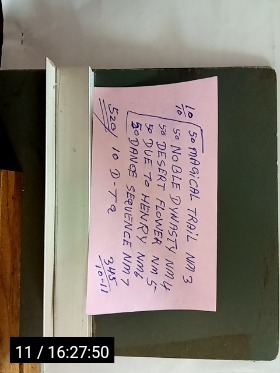 10/10 50 MAGICAL TRAIL NM 3
50 NOBLE DYNASTY NM 4
50 DESERT FLOWER NM 5
50 DUE TO HENRY NM 6
50 DANCE SEQUENCE NM 7
520/ 10 D-TQ 345/10-11
11 / 16:27:50